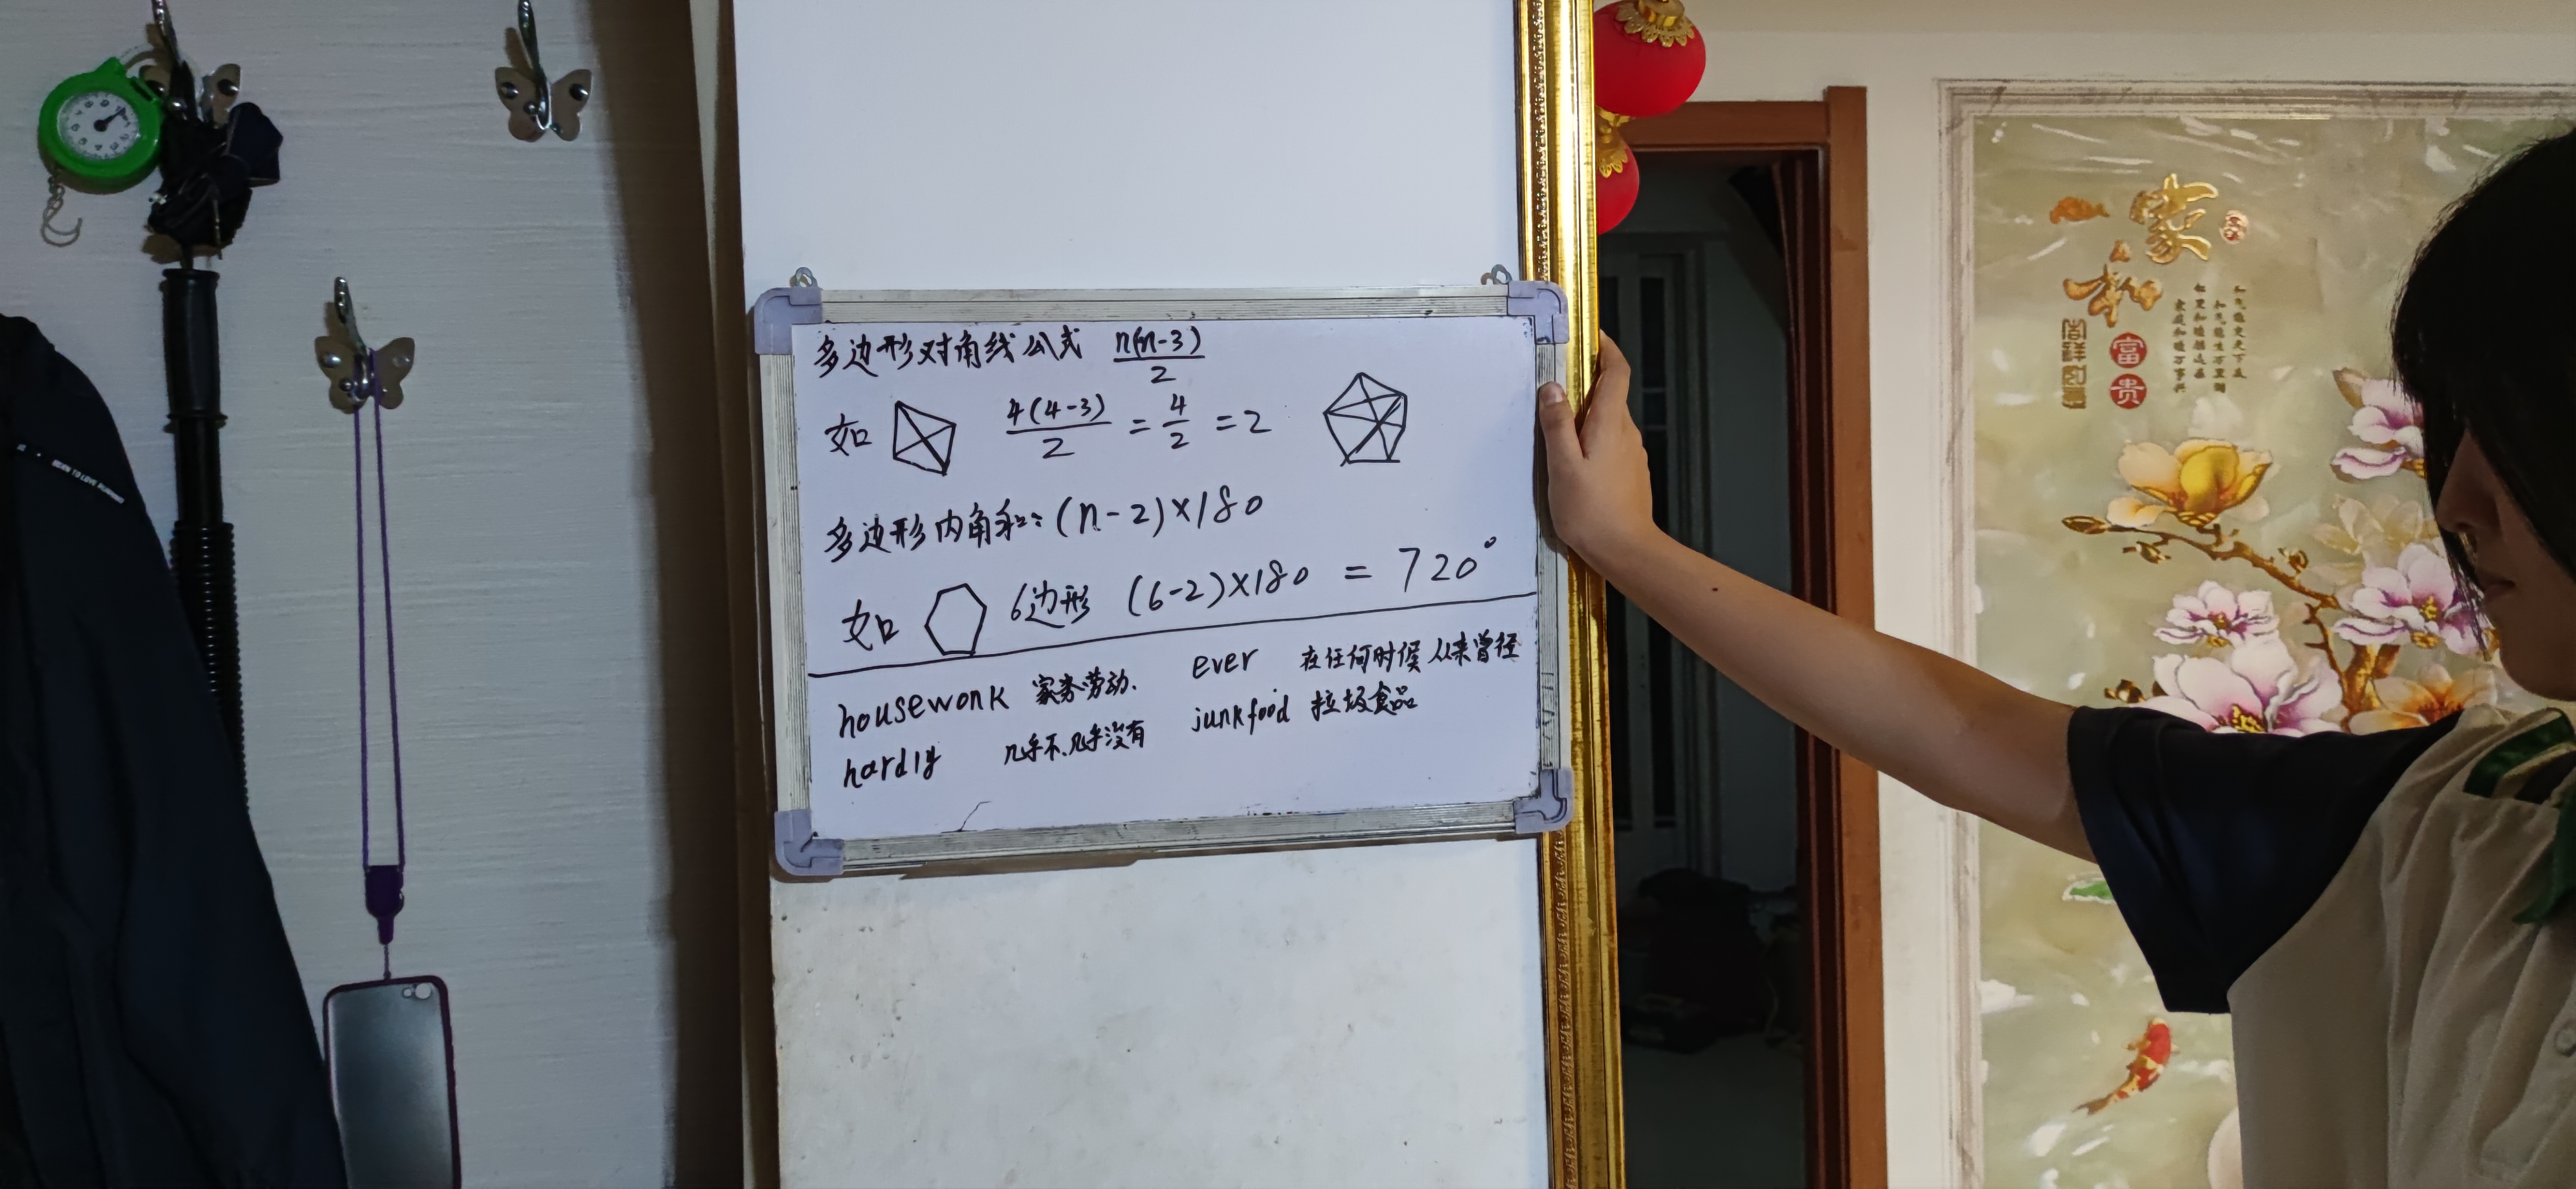 多边形对角线公式 n(n-3)/2
如 4(4-3)/2 = 4/2 = 2
多边形内角和:(n-2)×180
如 6边形 (6-2)×180 = 720°
housewonk 家务劳动. ever 在任何时候 从来曾径
hardly 几乎不.几乎没有 junkfood 垃圾食品
家和
富贵